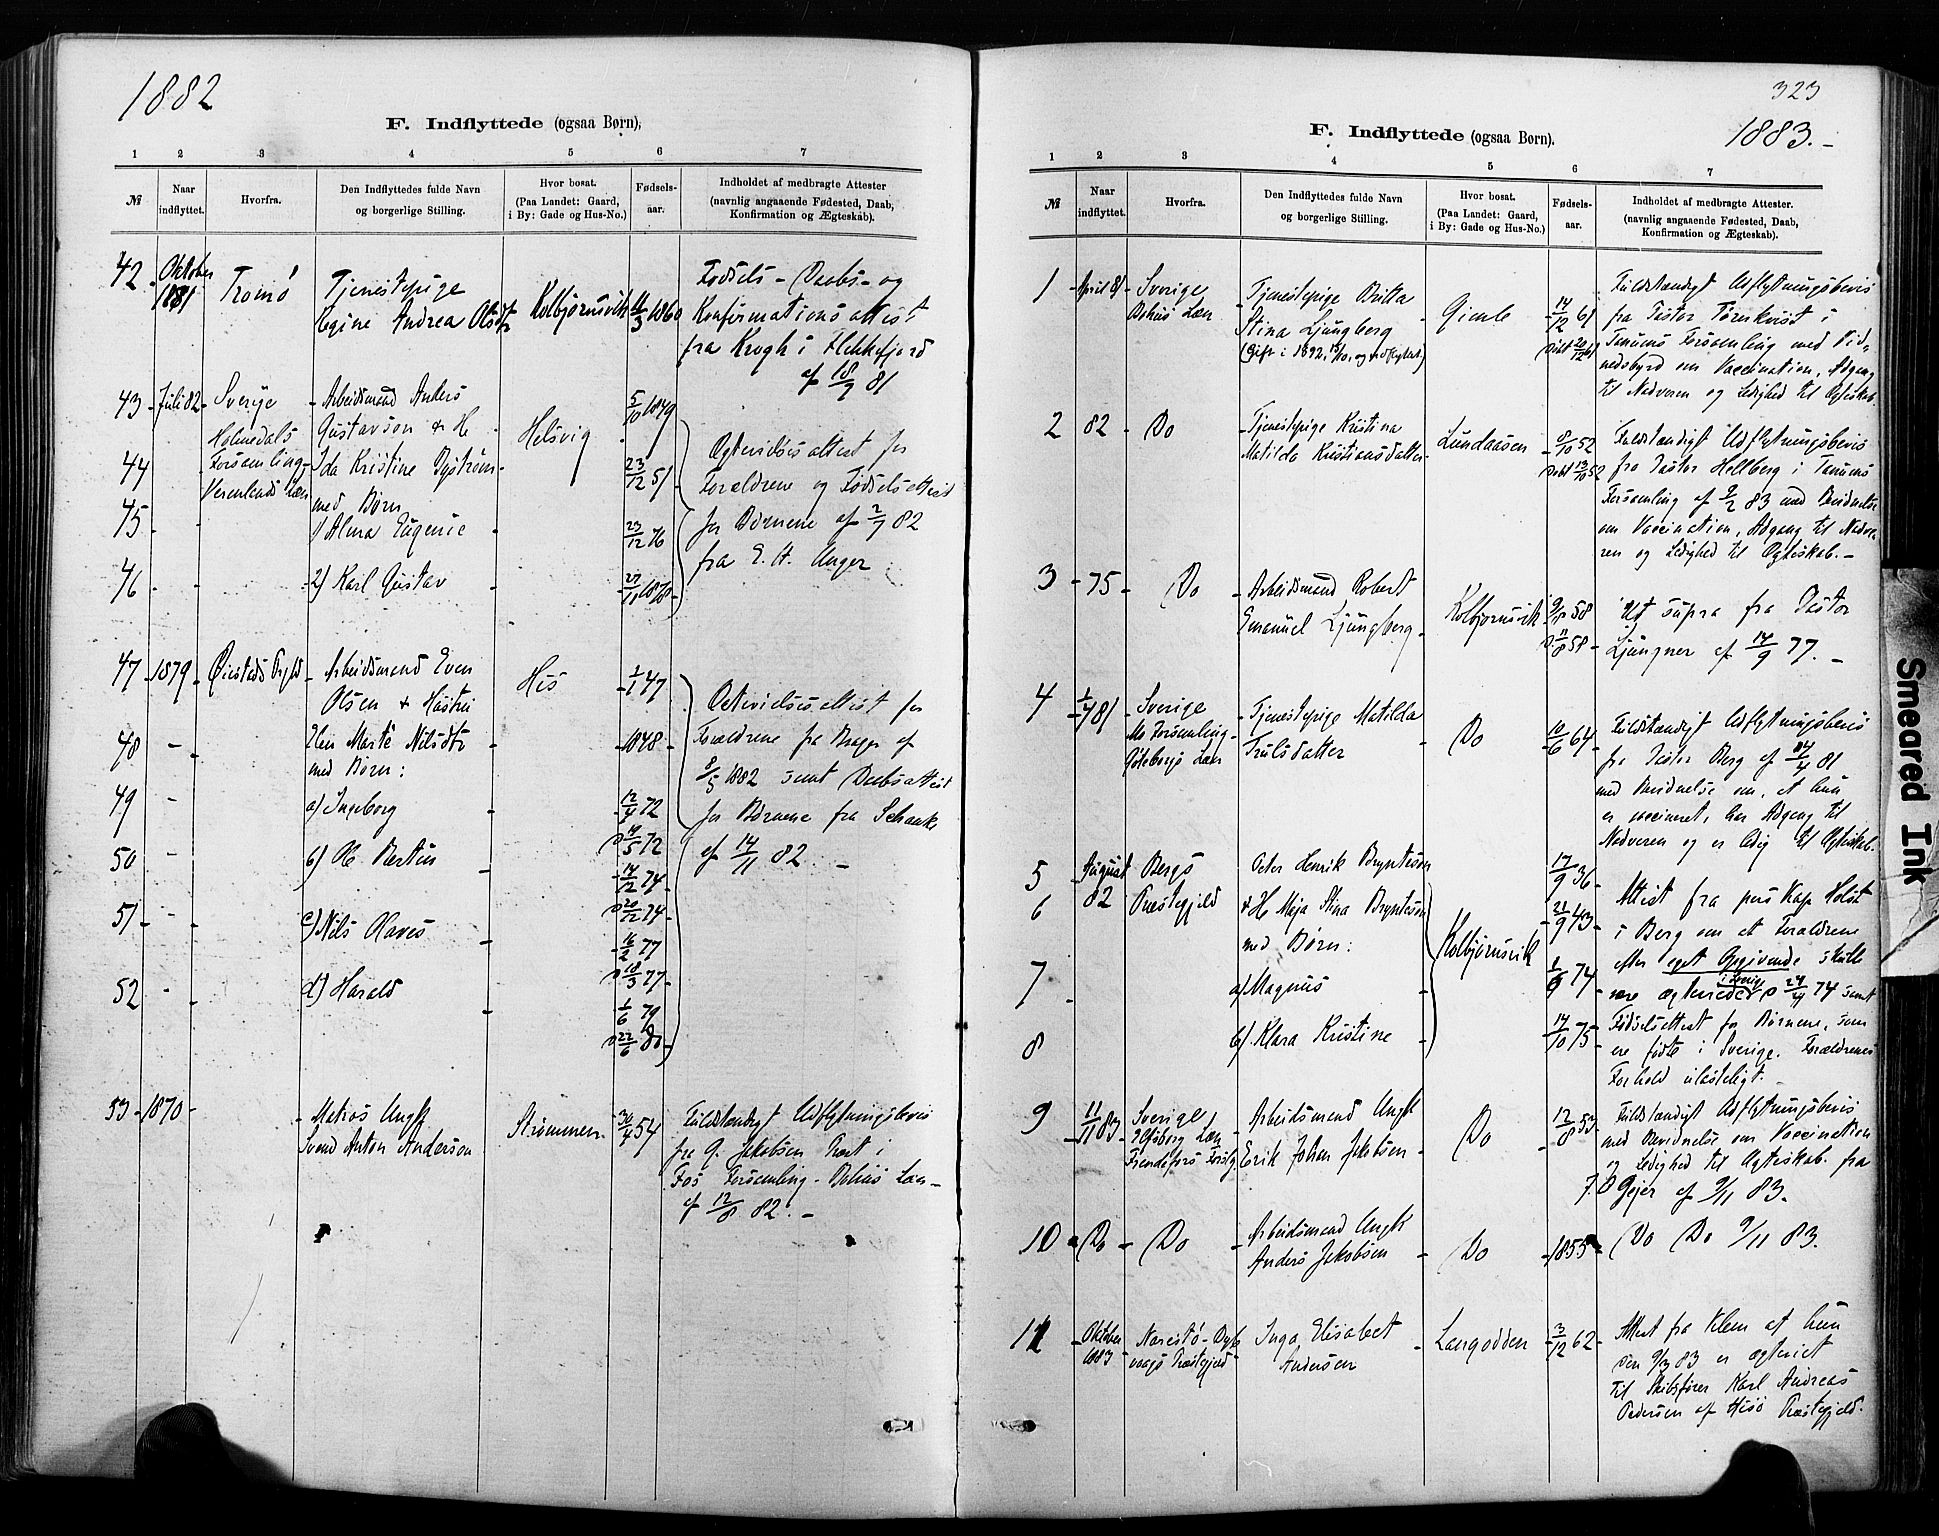 1882
F. Indflyttede (ogsaa Børn).
1 2 3 4 5 6 7
№ Naar indflyttet. Hvorfra. Den Indflyttedes fulde Navn og borgerlige Stilling. Hvor bosat. (Paa Landet: Gaard, i By: Gade og Hus-No.) Fødsels-aar. Indholdet af medbragte Attester (navnlig angaaende Fødested, Daab, Konfirmation og Ægteskab).
42 Oktober 1881 Tromö Tjenestepige Kolbjørnsvik 1860 Fødsels- Daabs- og
Regine Andrea Olsdtr Konfirmationsattest
fra Krogh i Flekkefjord
af 18/9 81
43 Juli 82 Sverige Arbeidsmand Anders Helsvig 5/10 1849
Holmedals Gustavson & H.
44 Forsamling Ida Kristine Byström 23/12 51 Ægtevielsesattest for
Vermlands Læn med Børn Forældrene og Fødselsattest
45 1) Alma Eugenie 23/12 76 for Børnene af 2/7 82
fra E. H. Unger
46 2) Karl Gustav
47 1879 Øiestads Prgjld Arbeidsmand Even His 1/1 47
Olsen & Hustru Ægtevielsesattest for
48 Elen Marte Nilsdtr 1848 Forældrene fra Bugge af
med Børn: 8/5 1882 samt Daabsattest
49 a) Ingeborg 12/4 72 for Børnene fra Schanke
50 b) Ole Bertin 14/5 72 af 14/11 82
14/12 74
51 c) Nils Olaves 20/12 74
16/2 77
52 d) Harald 18/3 77
1/6 79
22/6 80
53 1870 Matros Ungk Strømmen 30/4 54 Fuldstændigt Udflytningsbevis
Svend Anton Anderson fra G. Jakobsen Præst i
Fos Forsamling Bohus Læn
af 12/8 82.
323
1883.
F. Indflyttede (ogsaa Børn).
1 2 3 4 5 6 7
№ Naar indflyttet. Hvorfra. Den Indflyttedes fulde Navn og borgerlige Stilling. Hvor bosat. (Paa Landet: Gaard, i By: Gade og Hus-No.) Fødsels-aar. Indholdet af medbragte Attester. (navnlig angaaende Fødested, Daab, Konfirmation og Ægteskab).
1 April 81 Sverige Tjenestepige Britta Gimle 14/12 61 Fuldstændigt Udflytningsbevis
Bohus Læn Stina Ljungberg fra Pastor i
(Gift i 1892, og udflyttet) Døbt 20/12 61 Tanums Forsamling med Vid-
nesbyrd om Vaccination, Adgang
til Nadveren og Ledighed til Ægteskab.
2 82 Do Tjenestepige Kristina Lundaasen 8/10 52 Fuldstændigt Udflytningsbevis
Matilda Kristiansdatter Døbt 13/10 52 fra Pastor Hellberg i Tanums
Forsamling af 9/2 83 med Vidnesb.
om Vaccination, Adgang til Nadve-
ren og Ledighed til Ægteskab.
3 75 Do Arbeidsmand Robert Kolbjørnsvik 9/8 58 Ut supra fra Pastor
Emanuel Ljungberg 11/8 58 Ljungner af 14/9 77.
4 1/4 81 Sverige Tjenestepige Matilda Do 10/6 64 Fuldstændigt Udflytningsbevis
Mo Forsamling Trulsdatter fra Pastor Berg af 81
Göteborgs Læn med Anvidnelse om, at hun
er vaccineret, har Adgang til
Nadveren og er ledig til Ægteskab.
5 August 82 Bergs Peter Henrik Bryntesson 17/9 36 Attest fra pers Kap Holst
6 Præstegjeld & H. Maja Stina Bryntesson Kolbjørnsvik 21/9 43 i Berg om at Forældrene
med Børn: efter eget Opgivende skulle
7 a) Magnus 74 være ægteviede i Sverige 24/4 74 samt
8 b) Klara Kristine 14/10 75 Fødselsattest for Børnene, som
ere fødte i Sverige. Forældrenes
Forhold ulasteligt.
9 11/11 83 Sverige Arbeidsmand Ungk Do 12/8 53 Fuldstændigt Udflytningsbevis
Elfsborg Læn Erik Johan Jakobsen med Anvidnelse om Vaccination
Frendefors Forslg og Ledighed til Ægteskab. fra
Gejer af 9/11 83.
10 Do Do Arbeidsmand Ungk Do 1855 Do Do 9/11 83.
Anders Jakobsen
11 Oktober 1883 Narestö-Dyb- Inga Elisabet Langodden 3/12 62 Attest fra Klem at hun
vaags Præstegjeld Andersen den 83 er ægteviet
til Skibsfører Karl Andreas
Pedersen af Hisö Præstegjeld.
Smeared Ink